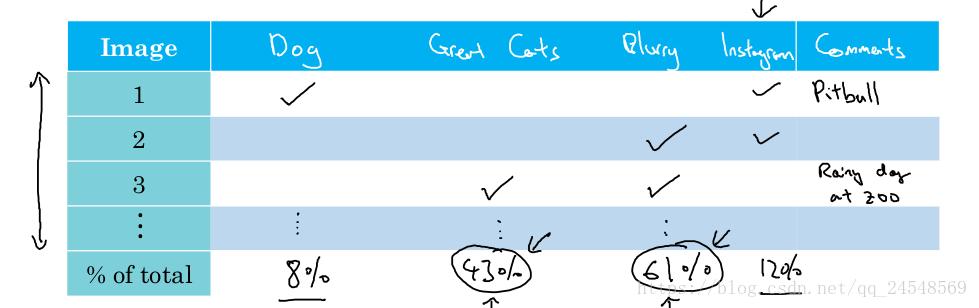 Image Dog Great Cats Blurry Instagram Comments
1 ✓ ✓ Pitbull
2 ✓ ✓
3 ✓ ✓ Rainy day
at zoo
⋮ ⋮ ⋮ ⋮
% of total 8% 43% 61% 12%
https://blog.csdn.net/qq_24548569